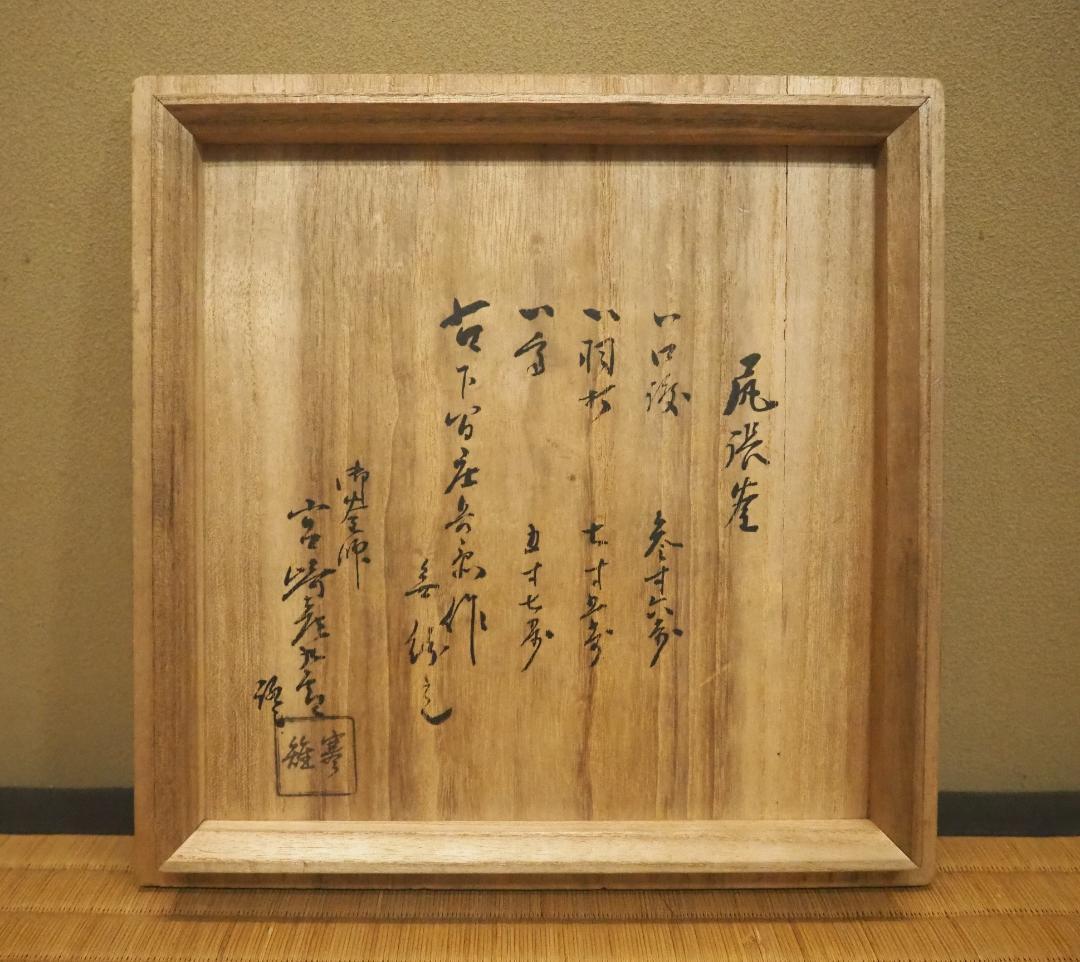 尾張釜
一口渡 参寸六分
一羽打 七寸五分
一高 五寸七分
右下間庄兵衛作
無紛候也
御釜師
宮崎彦九郎
証
寒雉